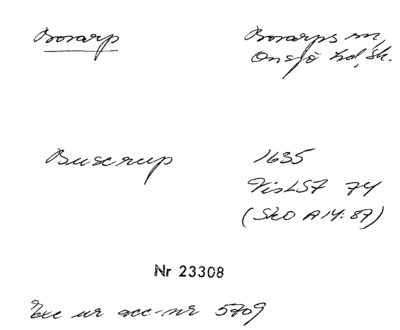 Bosarp Bosarps sn,
Onsjö hd, Sk.
Buserup 1635
VisLST 74
(SkO A 14: 87)
Nr 23308
Exc ur acc-nr 5709